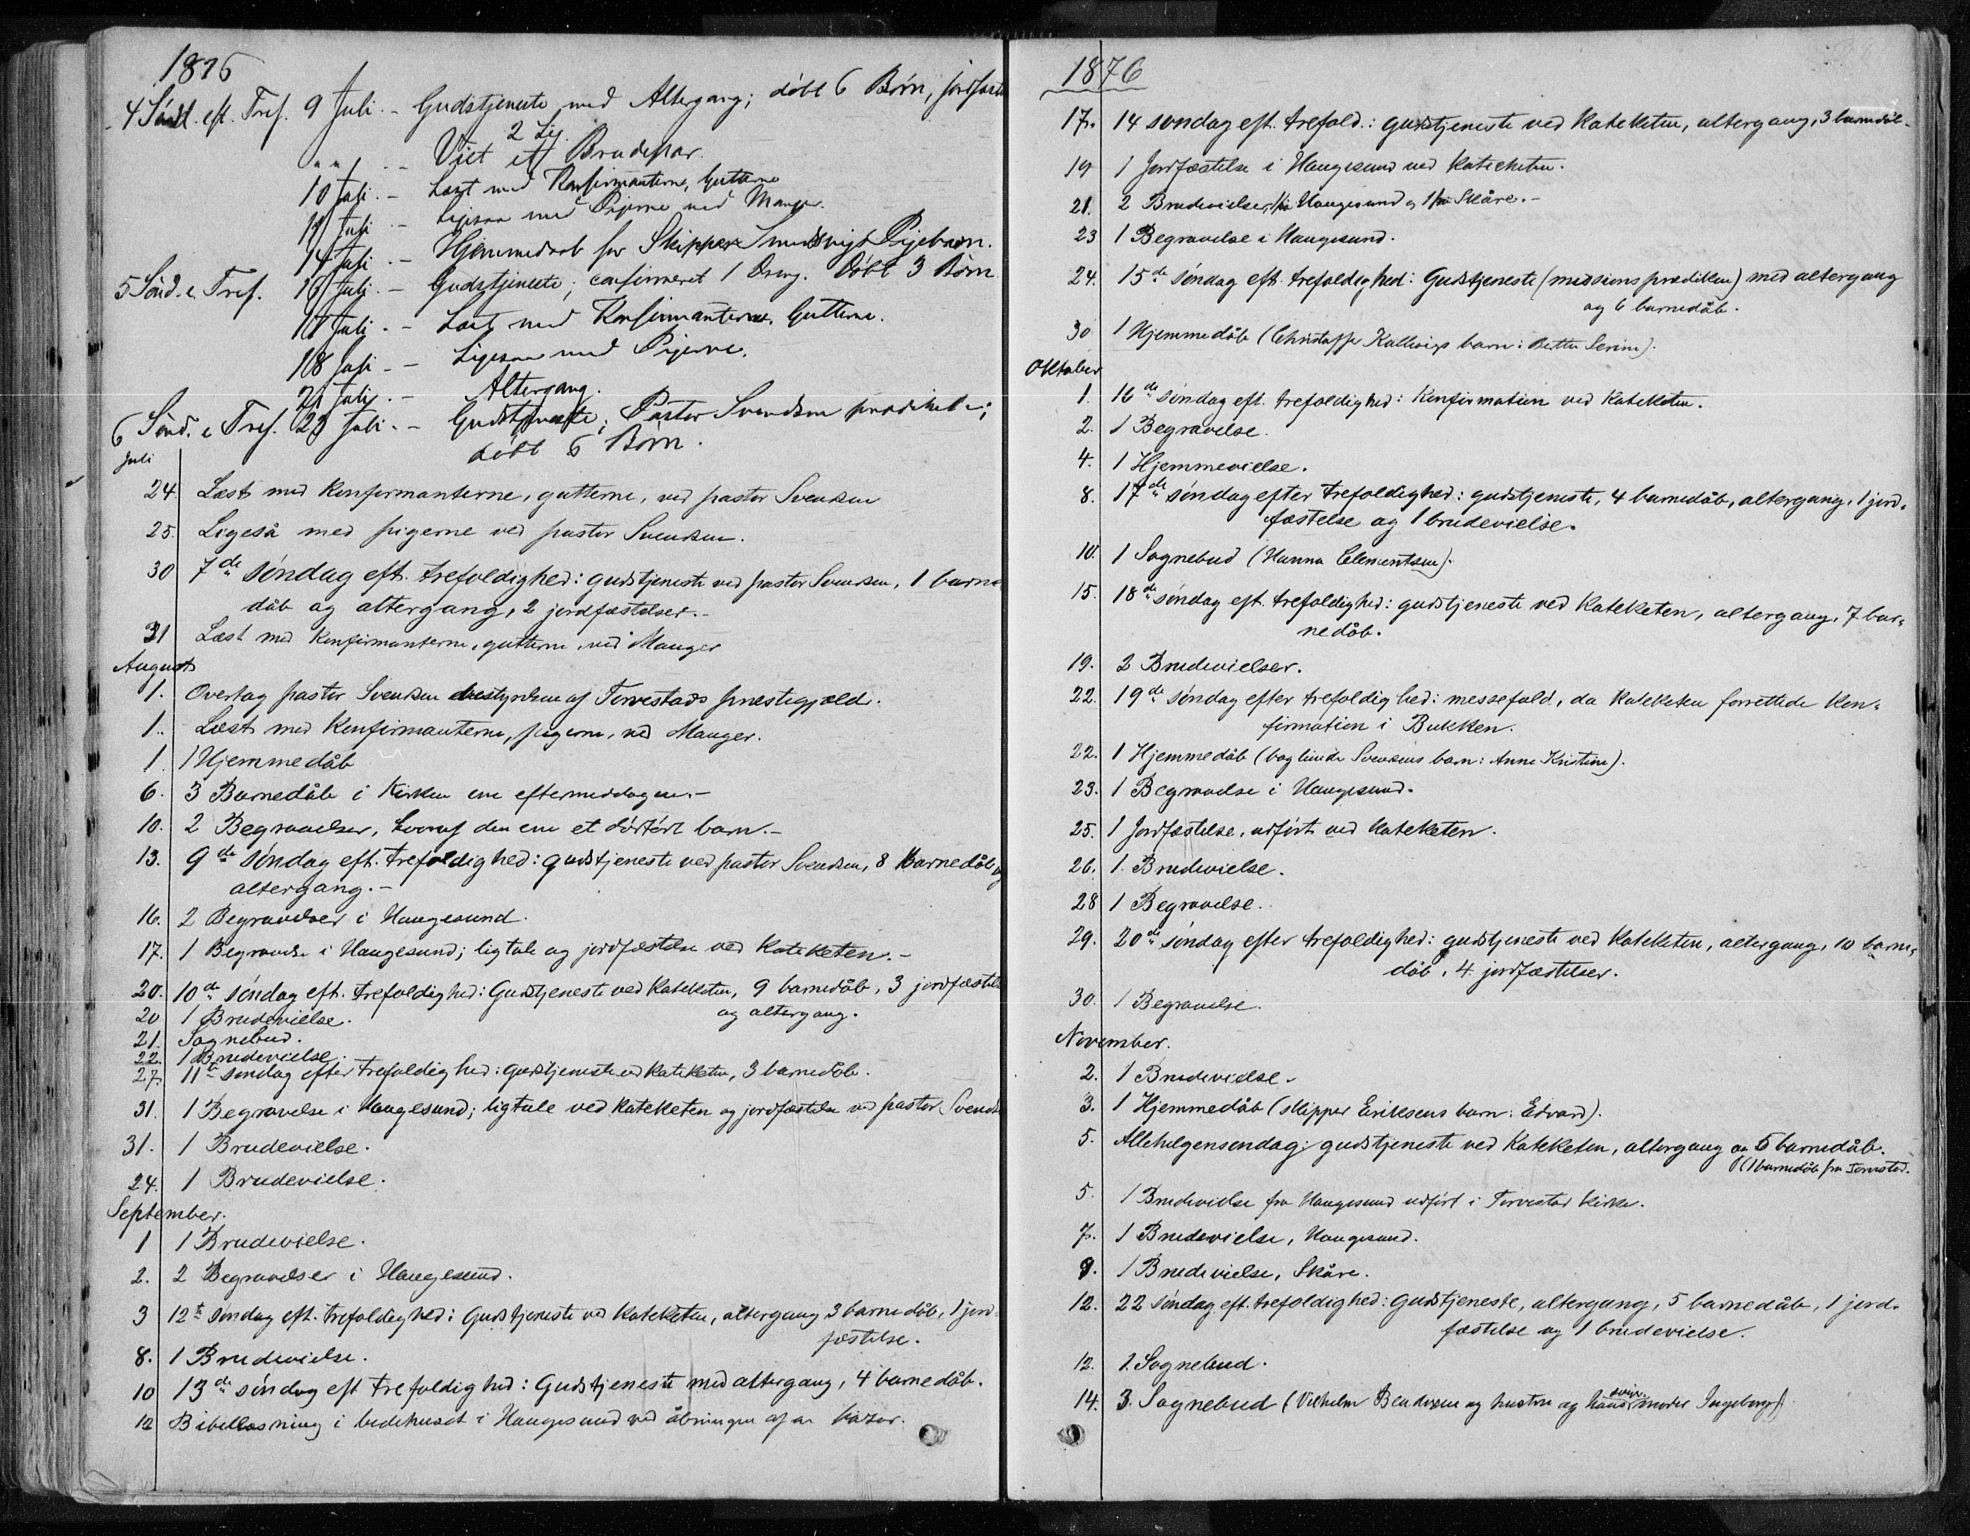 1876
4 Sønd. eft. Tref. 9 Juli. – Gudstjeneste med Altergang; døbt 6 Børn, jordfæste
2 Lig.
" " – Viet et Brudepar.
10 Juli. – Læst med Konfirmanterne, Gutterne
11 Juli – Ligesaa med Pigerne ved Manger.
14 Juli – Hjemmedaab for Skipper Smedsvigs Pigebarn.
5 Sønd. e. Tref. 16 Juli. – Gudstjeneste; confirmeret 1 Dreng. Døbt 3 Børn
17 Juli. – Læst med Konfirmanterne, Gutterne.
18 Juli – Ligesaa med Pigerne.
21 Juli. – Altergang.
6 Sønd. e Tref. 23 Juli. – Gudstjeneste; Pastor Svendsen prædikede;
døbt 6 Børn.
Juli
24. Læst med konfirmanterne, gutterne, ved pastor Svendsen
25. Ligeså med pigerne ved pastor Svendsen.
30 7de søndag eft. trefoldighed: gudstjeneste ved pastor Svendsen, 1 barne
dåb og altergang, 2 jordfæstelser.–
31 Læst med konfirmanterne, gutterne, ved Manger
August
1. Overtog pastor Svendsen bestyrelsen af Torvestads præstegjæld.
1. Læst med konfirmanterne, pigerne, ved Manger.
1. 1 Hjemmedåb
6. 3 Barnedåb i kirken om eftermiddagen.–
10. 2 Begravelser, hvoraf den ene et dødfødt barn.–
13. 9de søndag eft. trefoldighed: gudstjeneste ved pastor Svendsen, 8 barnedåb og
altergang.–
16. 2 Begravelser i Haugesund.
17. 1 Begravelse i Haugesund; ligtale og jordfæstelse ved kateketen.–
20. 10de søndag eft. trefoldighed: Gudstjeneste ved kateketen, 9 barnedåb, 3 jordfæstels
og altergang.
20 1 Brudevielse.
21. Sognebud.
22. 1 Brudevielse.
27. 11te søndag efter trefoldighed: gudstjeneste ved kateketen, 3 barnedåb.
31. 1 Begravelse i Haugesund; ligtale ved kateketen og jordfæstelse ved pastor Svends
31. 1 Brudevielse.
24. 1 Brudevielse.
September.
1 1 Brudevielse.
2. 2 Begravelser i Haugesund.
3 12te søndag eft. trefoldighed: Gudstjeneste ved kateketen, altergang 3 barnedåb, 1 jord-
fæstelse.
8. 1 Brudevielse.
10 13de søndag eft trefoldighed: Gudstjeneste med altergang, 4 barnedåb.
12 Bibellæsning i bedehuset i Haugesund ved åbningen af en bazar.
1876
17. 14 søndag eft. trefold.: gudstjeneste ved kateketen, altergang, 3 barnedåb.
19 1 Jordfæstelse i Haugesund ved kateketen.
21. 2 Brudevielser, 1 fra Haugesund og 1 fra Skåre.–
23 1 Begravelse i Haugesund.
24. 15de søndag eft. trefoldighed: Gudstjeneste (missionsprædiken) med altergang
og 6 barnedåb.
30 1 Hjemmedåb (Christoffer Kallevigs barn: Berthe Serine).
Oktober
1. 16de søndag eft. trefoldighed: Konfirmation ved kateketen.
2. 1 Begravelse.
4. 1 Hjemmevielse.
8. 17de søndag efter trefoldighed: gudstjeneste, 4 barnedåb, altergang, 1 jord-
fæstelse og 1 brudevielse.
10. 1 Sognebud (Hanna Clementsen).
15. 18de søndag eft. trefoldighed: gudstjeneste ved kateketen, altergang, 7 bar-
nedåb.
19. 2 Brudevielser.
22. 19de søndag efter trefoldighed: messefald, da kateketen forrettede kon-
firmation i Bukken.
22. 1 Hjemmedåb (Svensens barn: Anne Kristine).
23. 1 Begravelse i Haugesund.
25. 1 Jordfæstelse, udført ved kateketen.
26. 1. Brudevielse.
28 1 Begravelse.
29. 20de søndag efter trefoldighed: gudstjeneste ved kateketen, altergang, 10 barne-
dåb, 4 jordfæstelser.
30. 1 Begravelse.
November.
2. 1 Brudevielse.
3. 1 Hjemmedåb (skipper Eriksens barn: Edvard).
5. Allehelgensøndag: gudstjeneste ved kateketen, altergang og 5 barnedåb.
(1 barnedåb fra Torvestad.
5. 1 Brudevielse fra Haugesund udført i Torvestad kirke.
7. 1 Brudevielse, Haugesund.
9. 1 Brudevielse, Skåre.
12. 22 søndag eft. trefoldighed: gudstjeneste, altergang, 5 barnedåb, 1 jord-
fæstelse og 1 brudevielse.
12. 1. Sognebud.
14. 3. Sognebud (Vilhelm Bendixen og hustru og hans svigermoder Ingeborg).